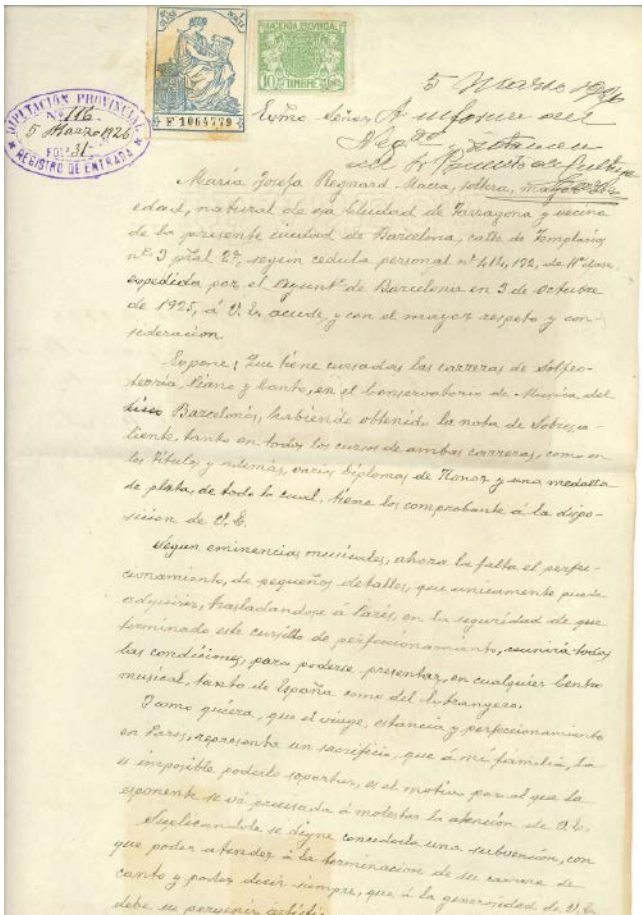 DIPUTACIÓN PROVINCIAL
Nº 116
5 Marzo 1926
FOLº 31
REGISTRO DE ENTRADA
11ª CLASE
F 1064779
HACIENDA PROVINCIAL
10 TIMBRE
5 Marzo 1926
Exmo Señor A informe del
Negdo y
del Sr de Cultura
María Josefa Regnard soltera, mayor de
edad, natural de esa Ciudad de Tarragona y vecina
de la presente ciudad de Barcelona, calle de Templarios
nº 3 pral 2ª, según cedula personal nº 414,172, de 11ª clase,
expedida por el Ayuntº de Barcelona en 3 de octubre
de 1925, á V. E. acude, y con el mayor respeto y con-
sideracion.
Expone; Que tiene cursadas las carreras de Solfeo-
teoría, Piano y Canto, en el Conservatorio de Musica del
Liceo Barcelonés, habiendo obtenido la nota de Sobresa-
liente, tanto en todos los cursos de ambas carreras, como en
los títulos y además, varios Diplomas de Honor y una medalla
de plata, de todo lo cual, tiene los comprobante á la dispo-
sicion de V. E.
Segun eminencias musicales, ahora la falta el perfec-
cionamiento, de pequeños detalles, que unicamente puede
adquirir, trasladandose á Paris, en la seguridad de que
terminado este cursillo de perfeccionamiento, reunirá todas
las condiciones, para poderse presentar, en cualquier Centro
musical, tanto de España como del Extrangero.
Y como quiera, que el viage, estancia y perfeccionamiento
en Paris, representa un sacrificio, que á mi familia, la
es imposible poderlo soportar, es el motivo por el que la
esponente se vé precisada á molestar la atención de V. E.
Suplicandole se digne concederla una subvensión, con
que poder atender á la terminacion de su carrera de
canto y poder decir siempre, que á la generosidad de V. E.
debe su porvenir